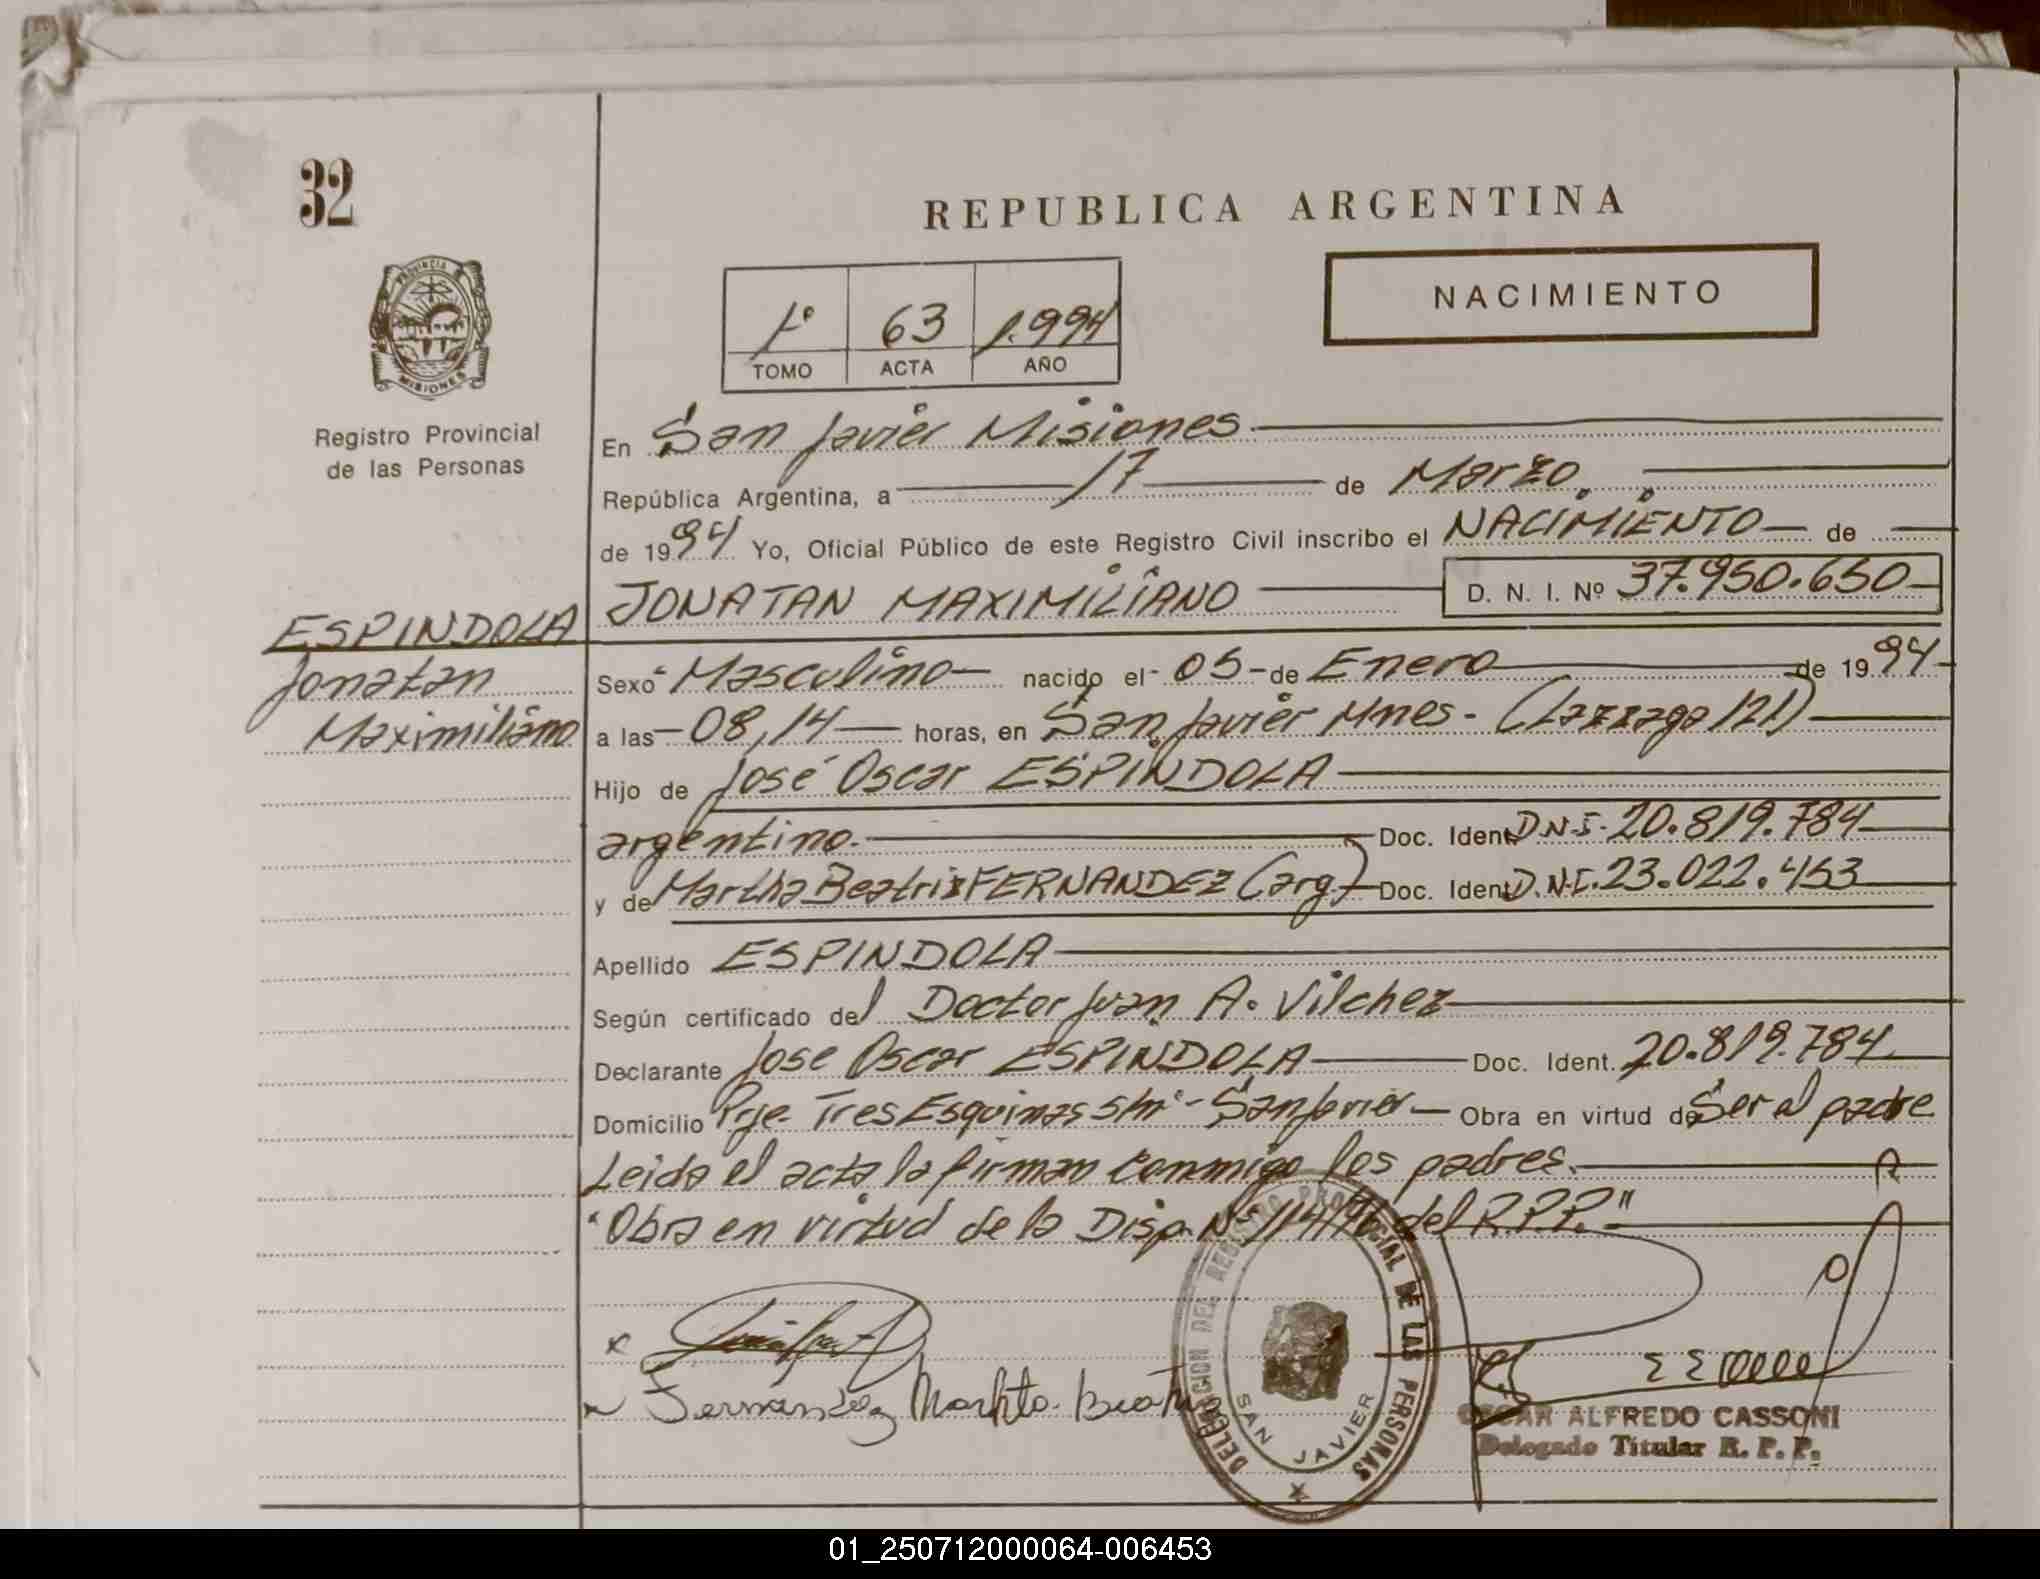 32
REPUBLICA ARGENTINA
NACIMIENTO
1º 63 1.994
TOMO ACTA AÑO
PROVINCIA DE MISIONES
Registro Provincial
de las Personas
En San Javier Misiones
República Argentina, a 17 de Marzo
de 1994 Yo, Oficial Público de este Registro Civil inscribo el NACIMIENTO de
JONATAN MAXIMILIANO D. N. I. Nº 37.950.650
ESPINDOLA
Jonatan
Maximiliano
Sexo Masculino nacido el 05 de Enero de 1994
a las 08,14 horas, en San Javier Mnes. (Lazzaga 121)
Hijo de José Oscar ESPINDOLA
argentino. Doc. Ident. D.N.I. 20.819.784
y de Martha Beatriz FERNANDEZ (arg.) Doc. Ident. D.N.I. 23.022.453
Apellido ESPINDOLA
Según certificado del Doctor Juan A. Vilchez
Declarante Jose Oscar ESPINDOLA Doc. Ident. 20.819.784
Domicilio Pje. Tres Esquinas s/nº - San Javier Obra en virtud de Ser el padre
Leida el acta la firman conmigo los padres.
"Obra en virtud de la Disp. Nº 114/76 del R.P.P."
Fernandez Martha Beat
DELEGACION DEL REGISTRO PROVINCIAL DE LAS PERSONAS
SAN JAVIER
OSCAR ALFREDO CASSONI
Delegado Titular R. P. P.
01_250712000064-006453